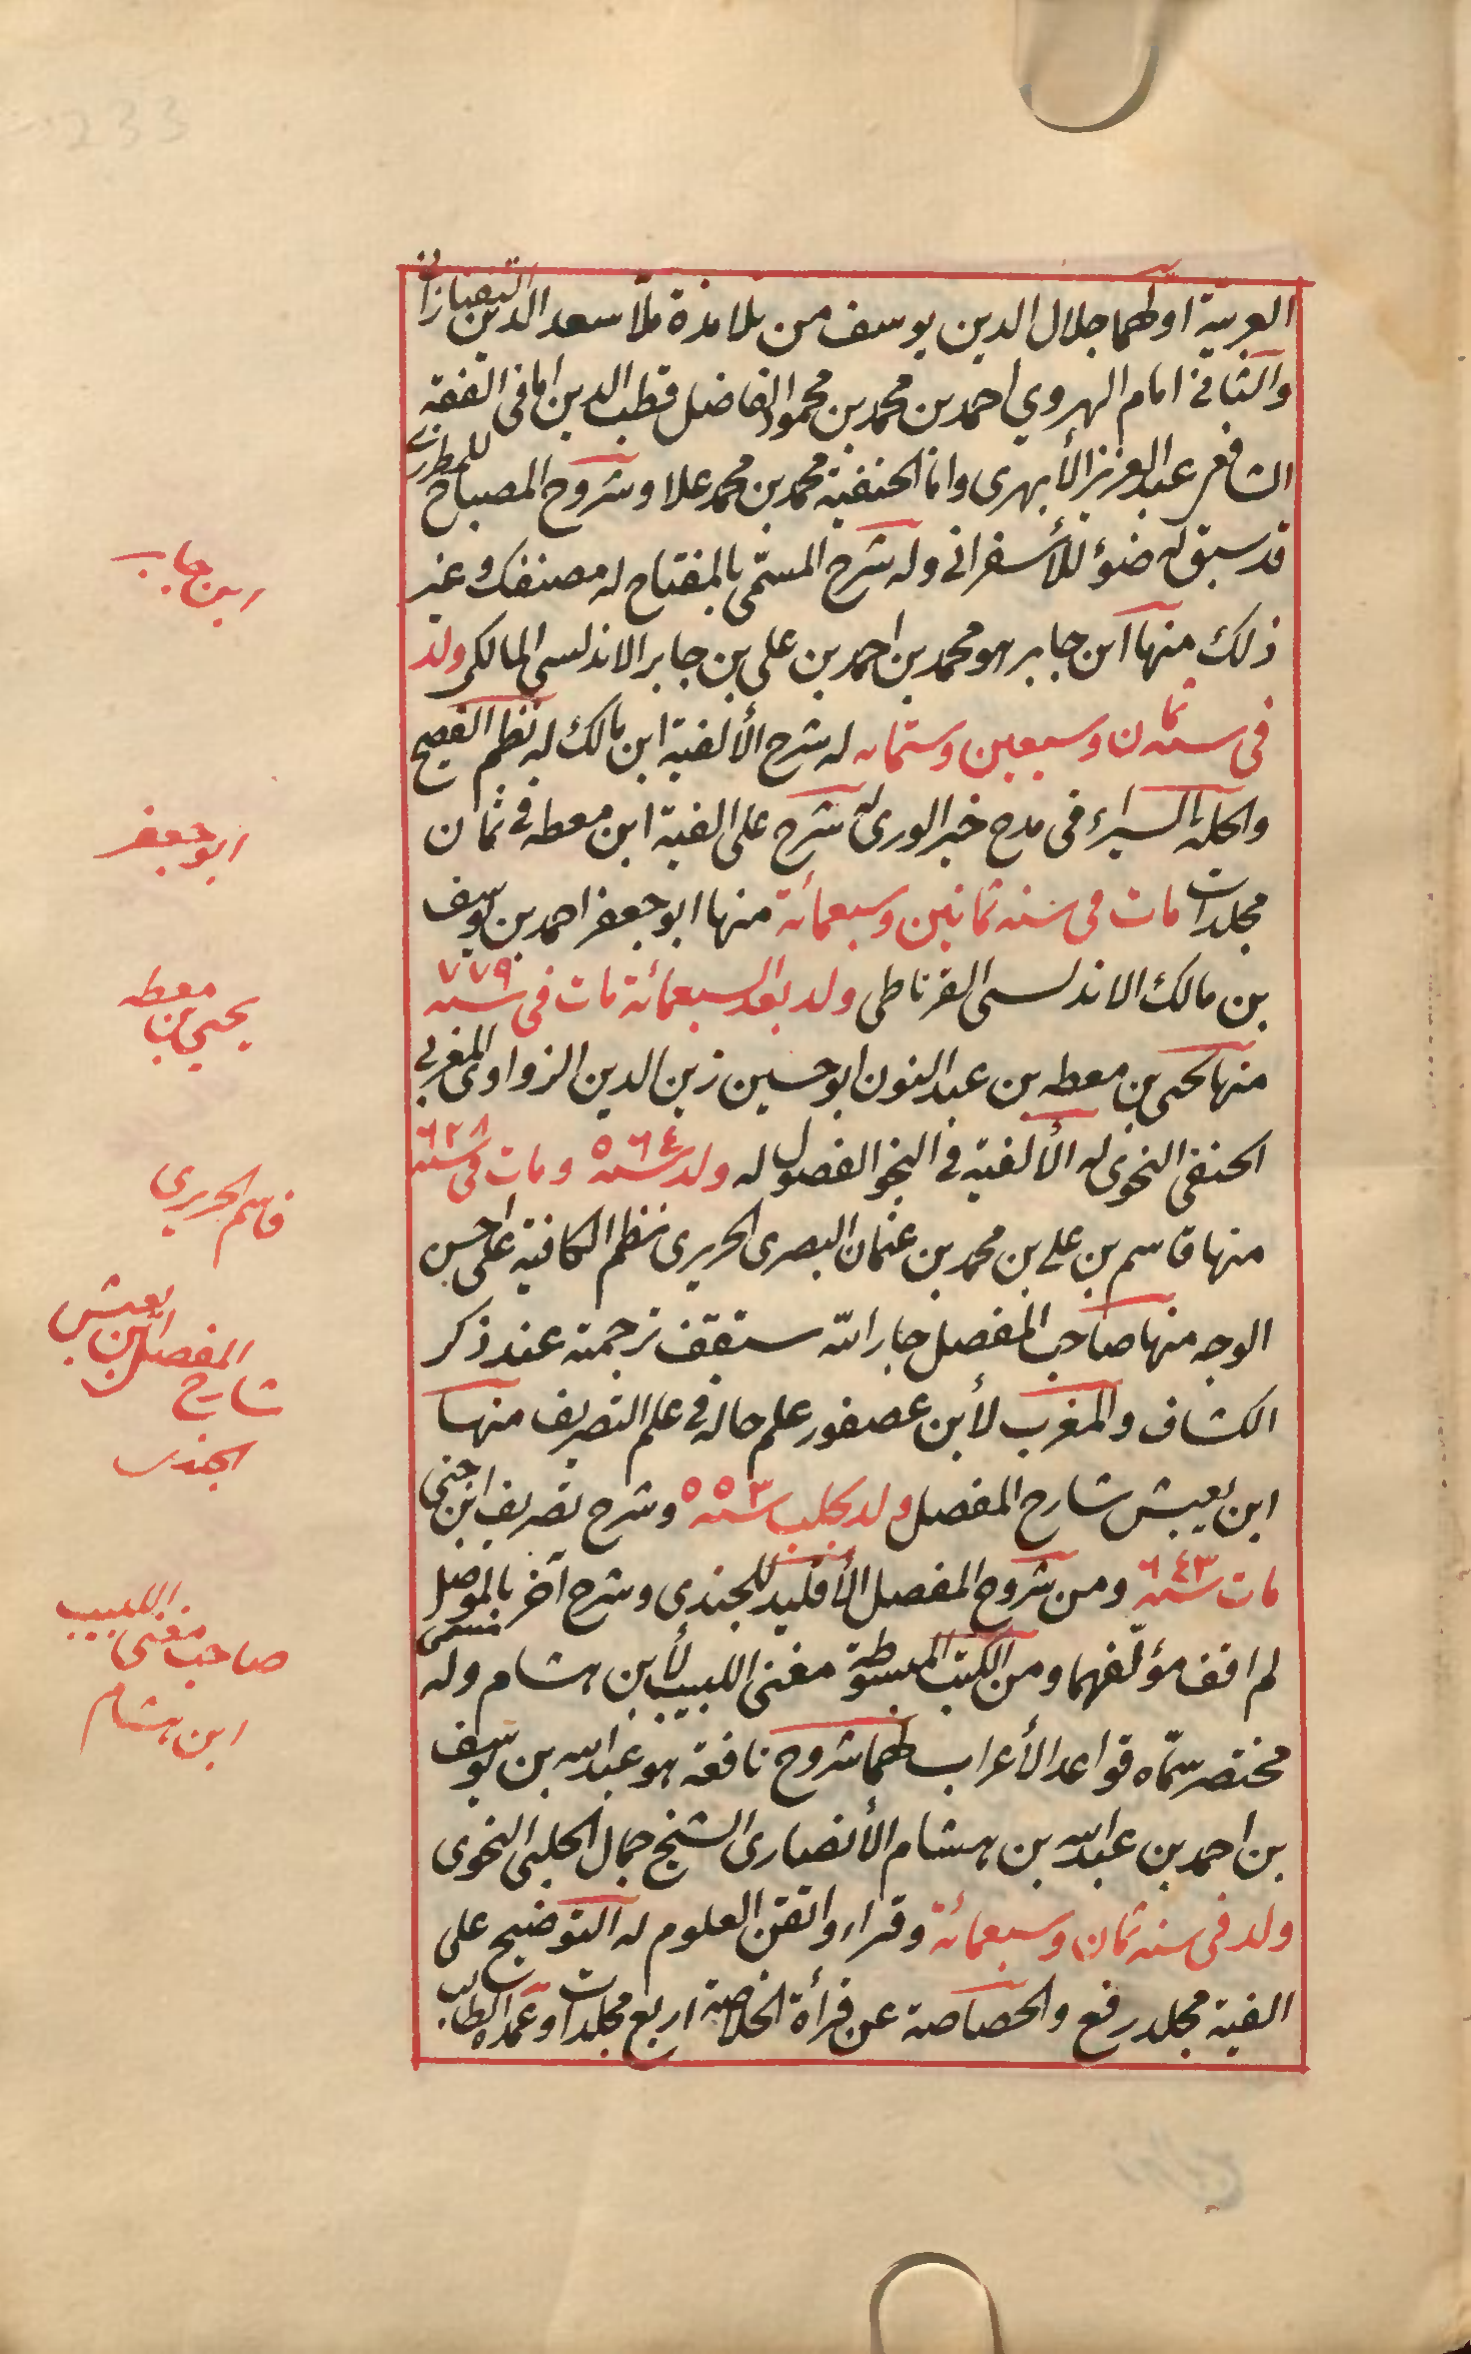 العربية اولهما جلال الدين يوسف من تلامذة ملا سعد الدين التفتازانى
والثانى امام الهروي احمد بن محمد بن محمود الفاضل قطب الدين اما فى الفقه
الشافعى عبد العزيز الأبهرى واما الحنفية محمد بن محمد علا وشروح المصباح للمطرزى
قد سبق له ضوؤ للأسفرانى وله شرح المسمّى بالمفتاح له مصنفك وغير
ذلك منها ابن جابر هو محمد بن احمد بن على بن جابر الاندلسى المالكى ولد
فى سنة ثمان وسبعين وستمائه له شرح الألفية ابن مالك له نظم الفصيح
والحلة السيراء فى مدح خير الورى له شرح على الفية ابن معطه فى ثمان
مجلدات مات فى سنه ثمانين وسبعمائة منها ابو جعفر احمد بن يوسف
بن مالك الاندلسى الغرناطى ولد بعد السبعمائة مات فى سنه ٧٧٩
منها يحيى بن معطه بن عبد النون ابو حسين زين الدين الزواوى المغربى
الحنفى النحوى له الألفية فى النحو الفصول له ولد سنه ٥٦٤ ومات فى سنه ٦٢٨
منها قاسم بن على بن محمد بن عثمان البصرى الحريرى نظم الكافية على احسن
الوجه منها صاحب المفصل جار الله ستقف ترجمته عند ذكر
الكشاف والمغرب لأبن عصفور علم حاله فى علم التصريف منها
ابن يعيش شارح المفصل ولد بحلب سنه ٥٥٣ وشرح تصريف ابن جنى
مات سنه ٦٤٣ ومن شروح المفصل الأقليد للجندى وشرح آخر بالموصل مسمى
لم اقف مؤلفهما ومن الكتب المبسوطة مغنى اللبيب لأبن هشام وله
مختصر سمّاه قواعد الأعراب لهما شروح نافعة هو عبد الله بن يوسف
بن احمد بن عبد الله بن هشام الأنصارى الشيخ جمال الحلبى النحوى
ولد فى سنه ثمان وسبعمائة وقراء واتقن العلوم له التوضيح على
الفية مجلد رفع والخصاصة عن قرأة الخلاصة اربع مجلدات وعمدة الطالب
ابن جابر
ابو جعفر
يحيى بن معطه
قاسم الحريرى
ابن يعيش
شارح المفصل
الجندى
صاحب مغنى اللبيب
ابن هشام
233